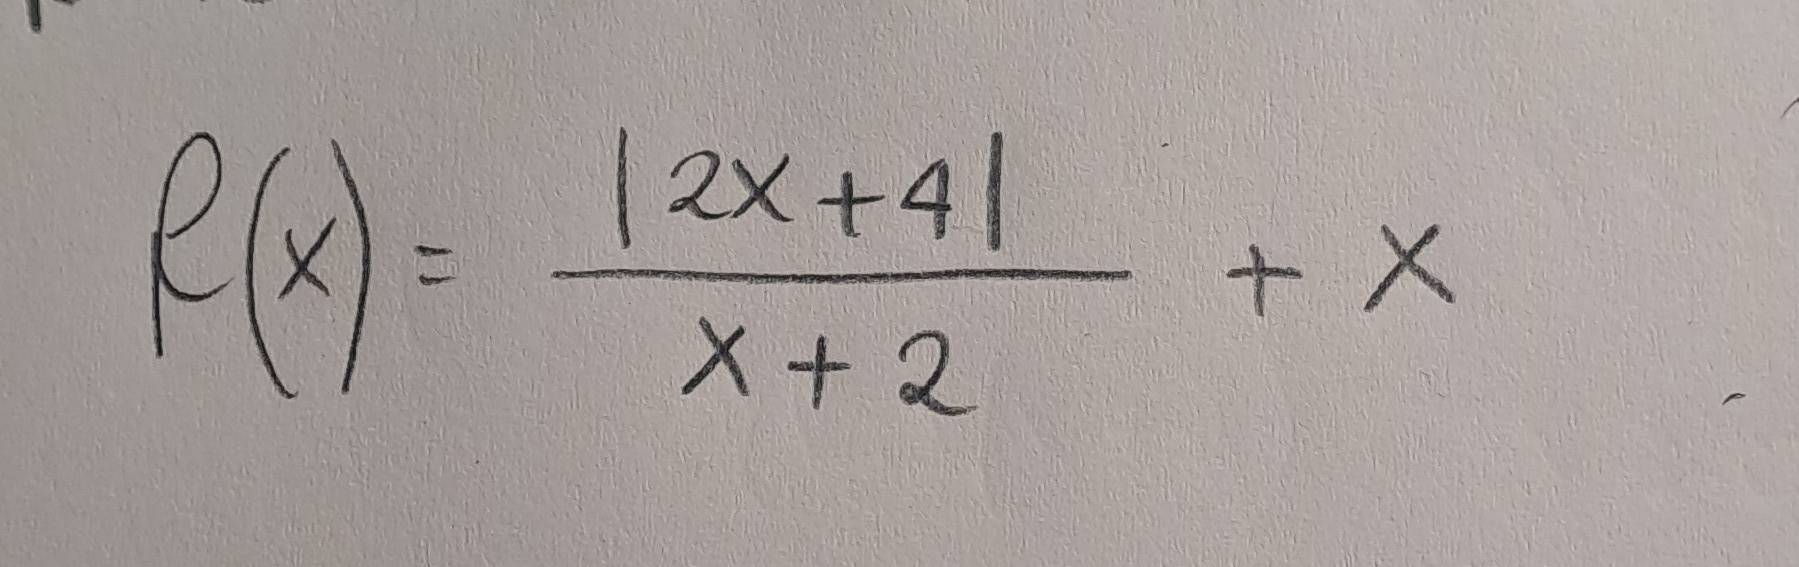 f(x) = |2x+4| / x+2 + x